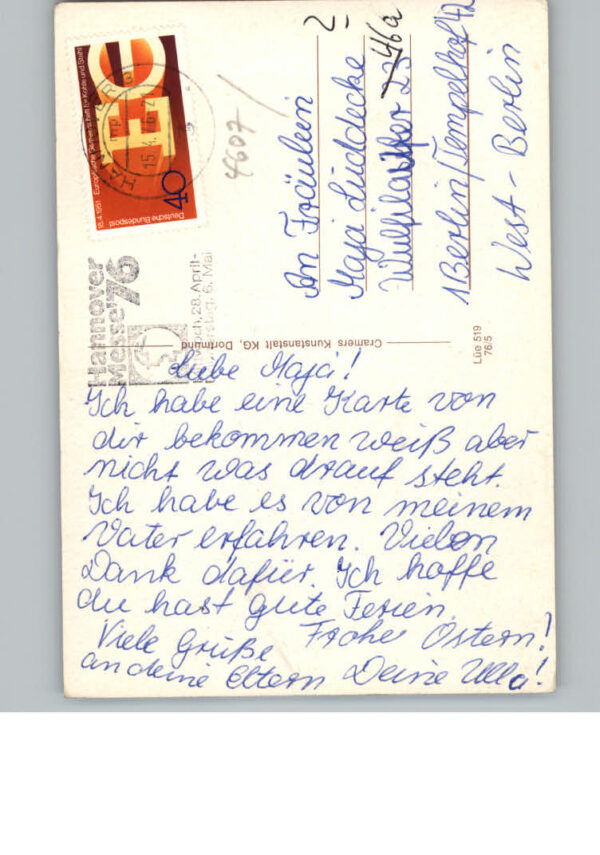 18.4.1951 · Europäische Gemeinschaft f. Kohle und Stahl
Deutsche Bundespost
40
HANNOVER
15.4.76-21
mp
Hannover
Messe '76
Mittwoch, 28. April-
Donnerstag, 6. Mai
4607
2
An Fräulein
Maja Lüddecke
Wulfila Ufer 23 46a
1 Berlin/Tempelhof 42
West-Berlin
Cramers Kunstanstalt KG, Dortmund
Lüe 519
76/5
Liebe Maja!
Ich habe eine Karte von
dir bekommen weiß aber
nicht was drauf steht.
Ich habe es von meinem
Vater erfahren. Vielen
Dank dafür. Ich hoffe
du hast gute Ferien.
Frohe Ostern!
Viele Grüße
an deine Eltern Deine Ulla!